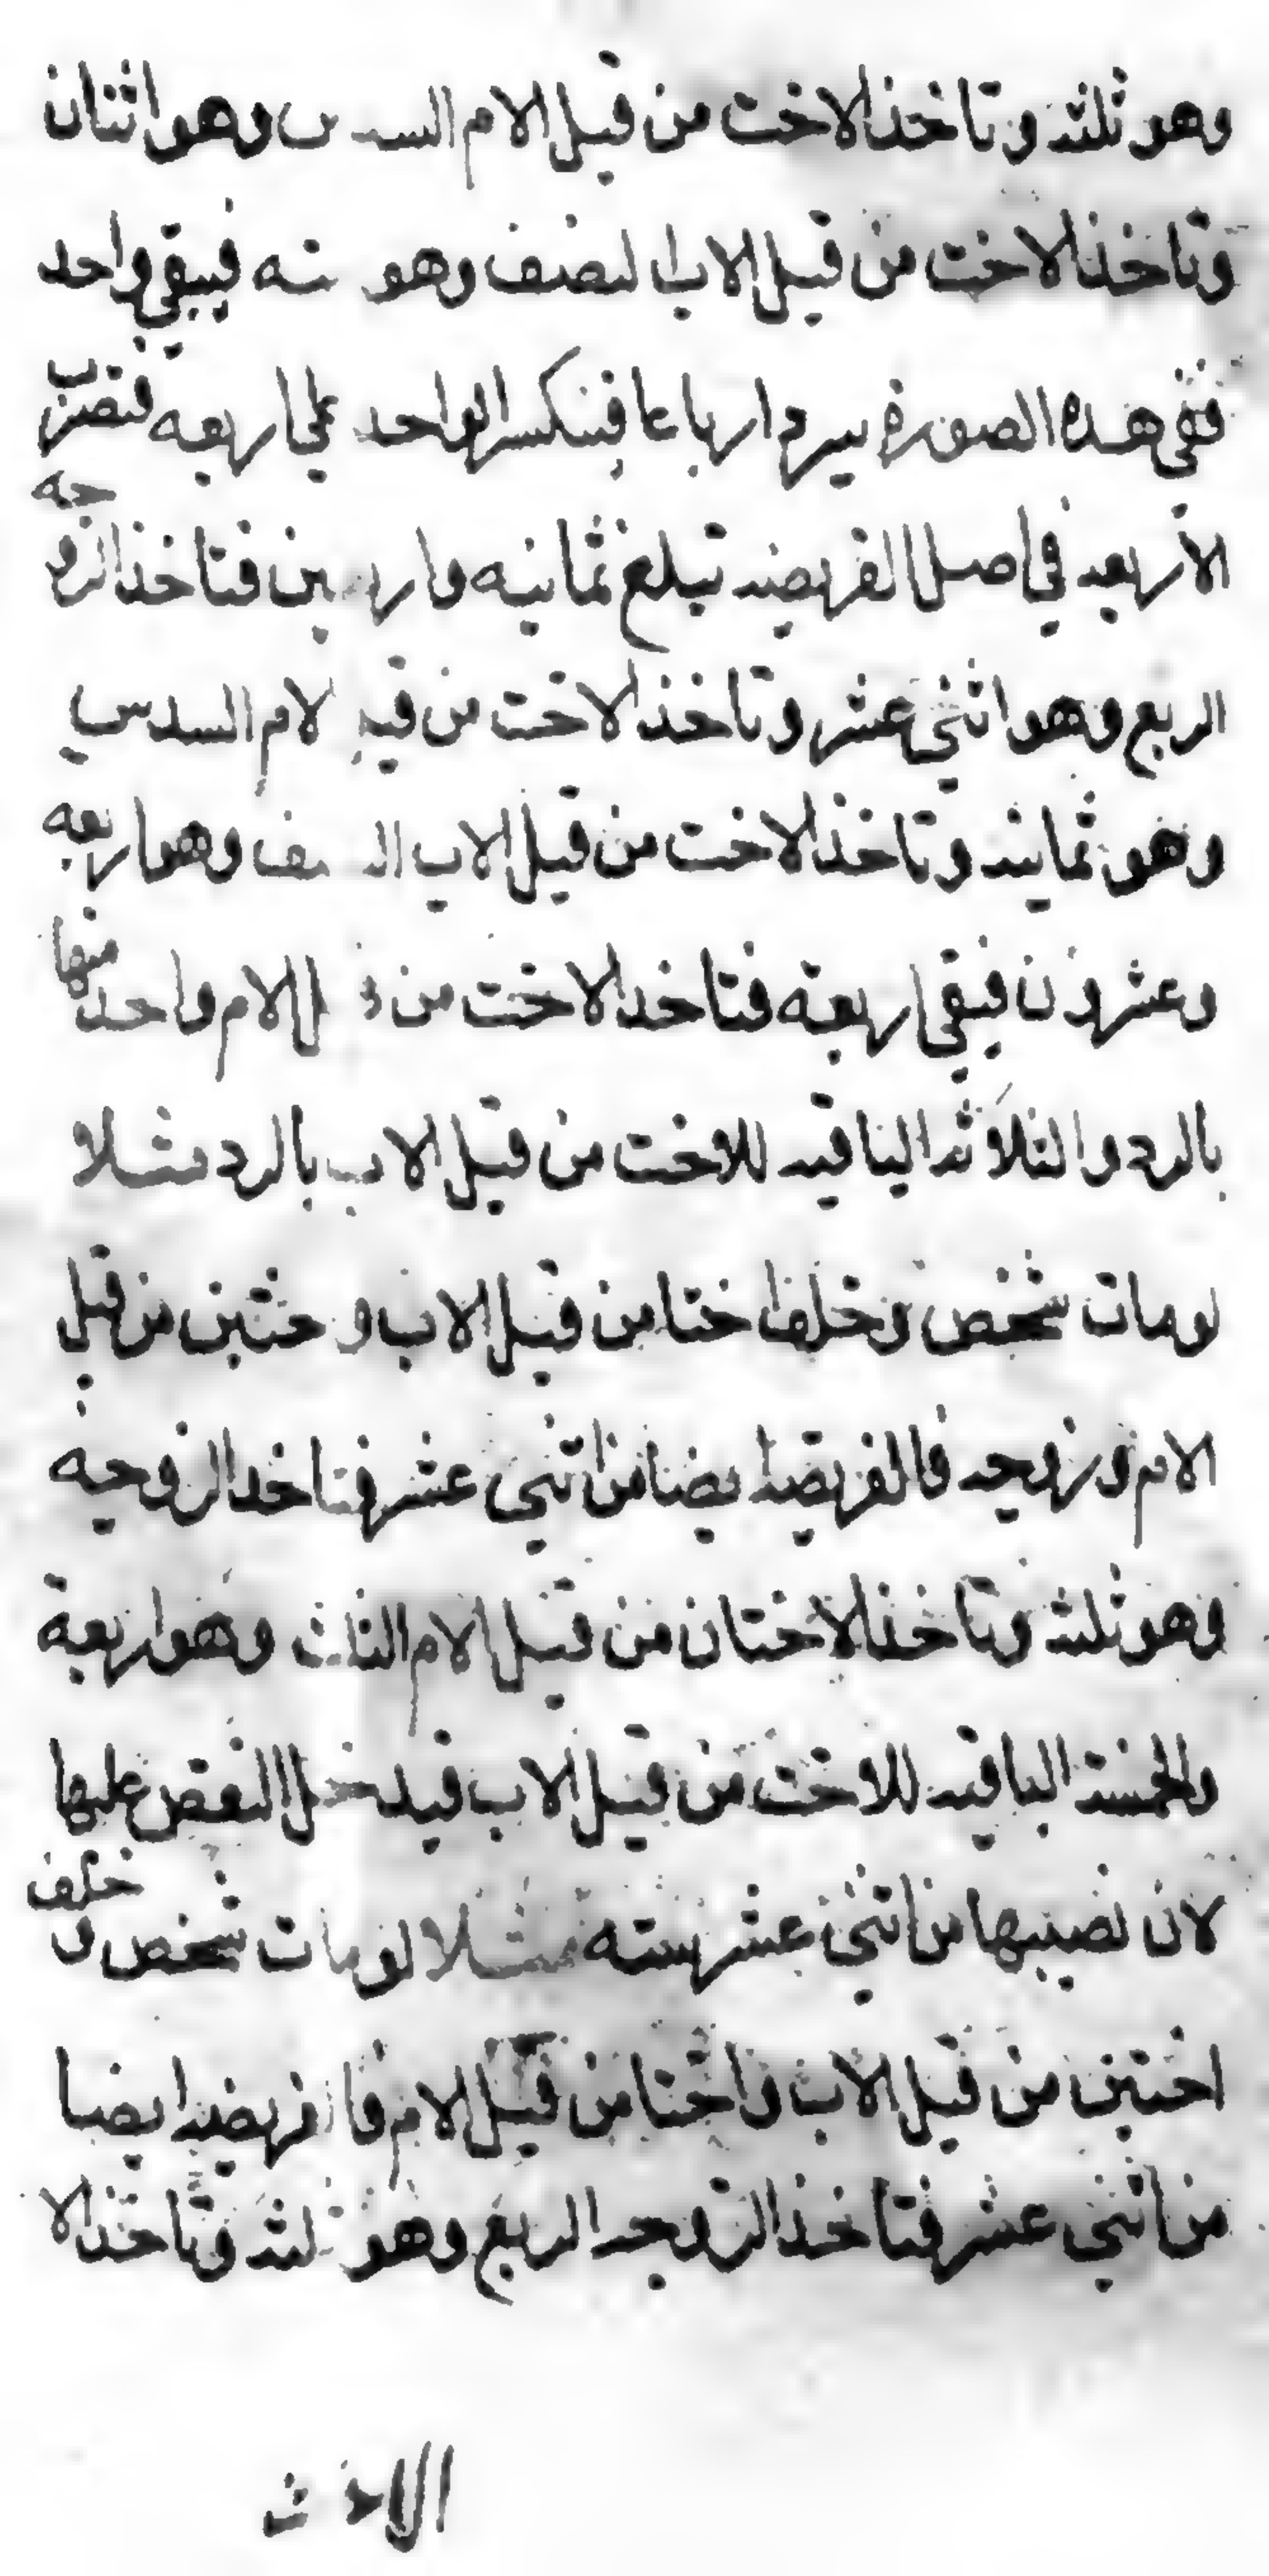 وهو ثلثه وتاخذ الاخت من قبل الام السدس وهو اثنان
وتاخذ الاخت من قبل الاب النصف وهو سته فيبقي واحد
ففي هذه الصورة يرد ارباعا فينكسر الواحد علي اربعه فتضرب
الاربعه في اصل الفريضه تبلغ ثمانيه واربعين فتاخذ الزوجه
الربع وهو اثني عشر وتاخذ الاخت من قبل الام السدس
وهو ثمانيه وتاخذ الاخت من قبل الاب النصف وهو اربعه
وعشرون فيبقي اربعة فتاخذ الاخت من قبل الام واحد منها
بالرد والثلاثه الباقيه للاخت من قبل الاب بالرد مثلا
لو مات شخص وخلف اختا من قبل الاب واختين من قبل
الام وزوجه فالفريضه ايضا من اثني عشر فتاخذ الزوجيه
وهو ثلثه وتاخذ الاختان من قبل الام الثلث وهو اربعة
والخمسة الباقيه للاخت من قبل الاب فيدخل النقص عليها
لان نصيبها من اثني عشر سته مثلا لو مات شخص وخلف
اختين من قبل الاب واختا من قبل الام فالفريضه ايضا
من اثني عشر فتاخذ الزوجه الربع وهو ثلثه وتاخذ الا
الاخت